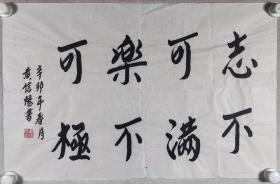 志不
可满
樂不
可極
辛卯年春月
黄信陽書